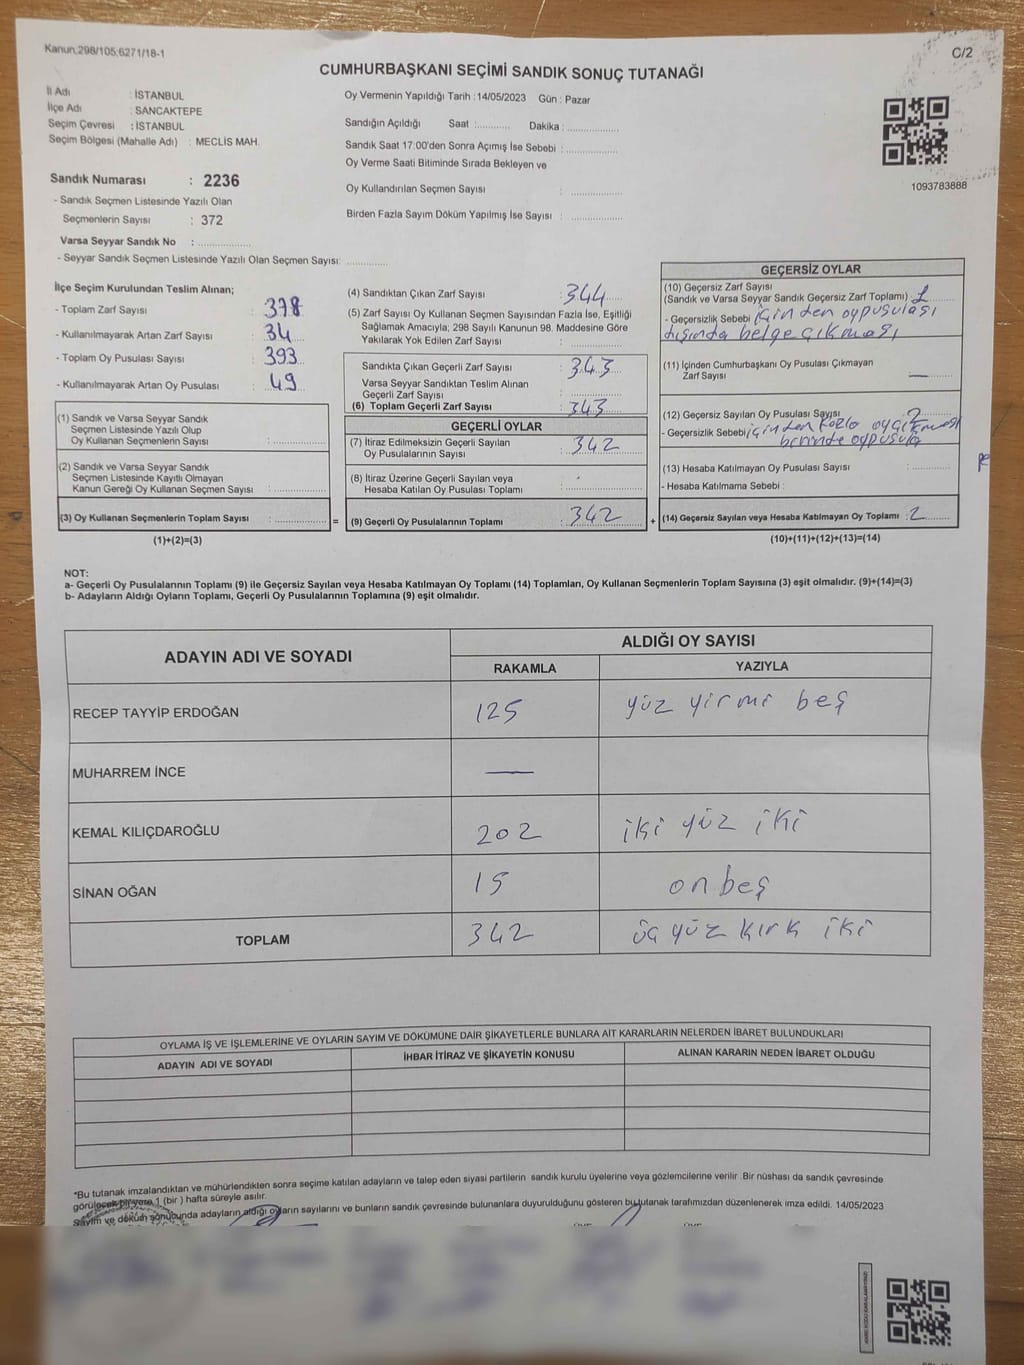 Kanun,298/105;6271/18-1
C/2
CUMHURBAŞKANI SEÇİMİ SANDIK SONUÇ TUTANAĞI
İl Adı : İSTANBUL
İlçe Adı : SANCAKTEPE
Seçim Çevresi : İSTANBUL
Seçim Bölgesi (Mahalle Adı) : MECLİS MAH.
Sandık Numarası : 2236
- Sandık Seçmen Listesinde Yazılı Olan
Seçmenlerin Sayısı : 372
Varsa Seyyar Sandık No : ..............
- Seyyar Sandık Seçmen Listesinde Yazılı Olan Seçmen Sayısı: ..............
Oy Vermenin Yapıldığı Tarih : 14/05/2023 Gün : Pazar
Sandığın Açıldığı Saat :............ Dakika :.................
Sandık Saat 17:00'den Sonra Açımış İse Sebebi : .................
Oy Verme Saati Bitiminde Sırada Bekleyen ve
Oy Kullandırılan Seçmen Sayısı : .................
Birden Fazla Sayım Döküm Yapılmış İse Sayısı : .................
1093783888
İlçe Seçim Kurulundan Teslim Alınan;
- Toplam Zarf Sayısı : 378
- Kullanılmayarak Artan Zarf Sayısı : 34
- Toplam Oy Pusulası Sayısı : 393
- Kullanılmayarak Artan Oy Pusulası : 49
(1) Sandık ve Varsa Seyyar Sandık
Seçmen Listesinde Yazılı Olup
Oy Kullanan Seçmenlerin Sayısı : .................
(2) Sandık ve Varsa Seyyar Sandık
Seçmen Listesinde Kayıtlı Olmayan
Kanun Gereği Oy Kullanan Seçmen Sayısı : .................
(3) Oy Kullanan Seçmenlerin Toplam Sayısı : .................
(1)+(2)=(3)
(4) Sandıktan Çıkan Zarf Sayısı : 344
(5) Zarf Sayısı Oy Kullanan Seçmen Sayısından Fazla İse, Eşitliği
Sağlamak Amacıyla; 298 Sayılı Kanunun 98. Maddesine Göre
Yakılarak Yok Edilen Zarf Sayısı : .................
Sandıkta Çıkan Geçerli Zarf Sayısı : 343
Varsa Seyyar Sandıktan Teslim Alınan
Geçerli Zarf Sayısı : .................
(6) Toplam Geçerli Zarf Sayısı : 343
GEÇERLİ OYLAR
(7) İtiraz Edilmeksizin Geçerli Sayılan
Oy Pusulalarının Sayısı : 342
(8) İtiraz Üzerine Geçerli Sayılan veya
Hesaba Katılan Oy Pusulası Toplamı : .................
= (9) Geçerli Oy Pusulalarının Toplamı : 342
GEÇERSİZ OYLAR
(10) Geçersiz Zarf Sayısı
(Sandık ve Varsa Seyyar Sandık Geçersiz Zarf Toplamı) : 1
- Geçersizlik Sebebi : içinden oypusulası
dışında belge çıkması
(11) İçinden Cumhurbaşkanı Oy Pusulası Çıkmayan
Zarf Sayısı : —
(12) Geçersiz Sayılan Oy Pusulası Sayısı : 2
- Geçersizlik Sebebi : içinden fazla oy çıkması
birinde oypusula
(13) Hesaba Katılmayan Oy Pusulası Sayısı : .................
- Hesaba Katılmama Sebebi :
+ (14) Geçersiz Sayılan veya Hesaba Katılmayan Oy Toplamı : 2
(10)+(11)+(12)+(13)=(14)
NOT:
a- Geçerli Oy Pusulalarının Toplamı (9) ile Geçersiz Sayılan veya Hesaba Katılmayan Oy Toplamı (14) Toplamları, Oy Kullanan Seçmenlerin Toplam Sayısına (3) eşit olmalıdır. (9)+(14)=(3)
b- Adayların Aldığı Oyların Toplamı, Geçerli Oy Pusulalarının Toplamına (9) eşit olmalıdır.
ADAYIN ADI VE SOYADI
ALDIĞI OY SAYISI
RAKAMLA YAZIYLA
RECEP TAYYİP ERDOĞAN 125 yüz yirmi beş
MUHARREM İNCE —
KEMAL KILIÇDAROĞLU 202 iki yüz iki
SİNAN OĞAN 15 on beş
TOPLAM 342 üç yüz kırk iki
OYLAMA İŞ VE İŞLEMLERİNE VE OYLARIN SAYIM VE DÖKÜMÜNE DAİR ŞİKAYETLERLE BUNLARA AİT KARARLARIN NELERDEN İBARET BULUNDUKLARI
ADAYIN ADI VE SOYADI İHBAR İTİRAZ VE ŞİKAYETİN KONUSU ALINAN KARARIN NEDEN İBARET OLDUĞU
*Bu tutanak imzalandıktan ve mühürlendikten sonra seçime katılan adayların ve talep eden siyasi partilerin sandık kurulu üyelerine veya gözlemcilerine verilir. Bir nüshası da sandık çevresinde
görülecek bir yere 1 (bir ) hafta süreyle asılır.
Sayım ve döküm sonucunda adayların aldığı oyların sayılarını ve bunların sandık çevresinde bulunanlara duyurulduğunu gösteren bu tutanak tarafımızdan düzenlenerek imza edildi. 14/05/2023